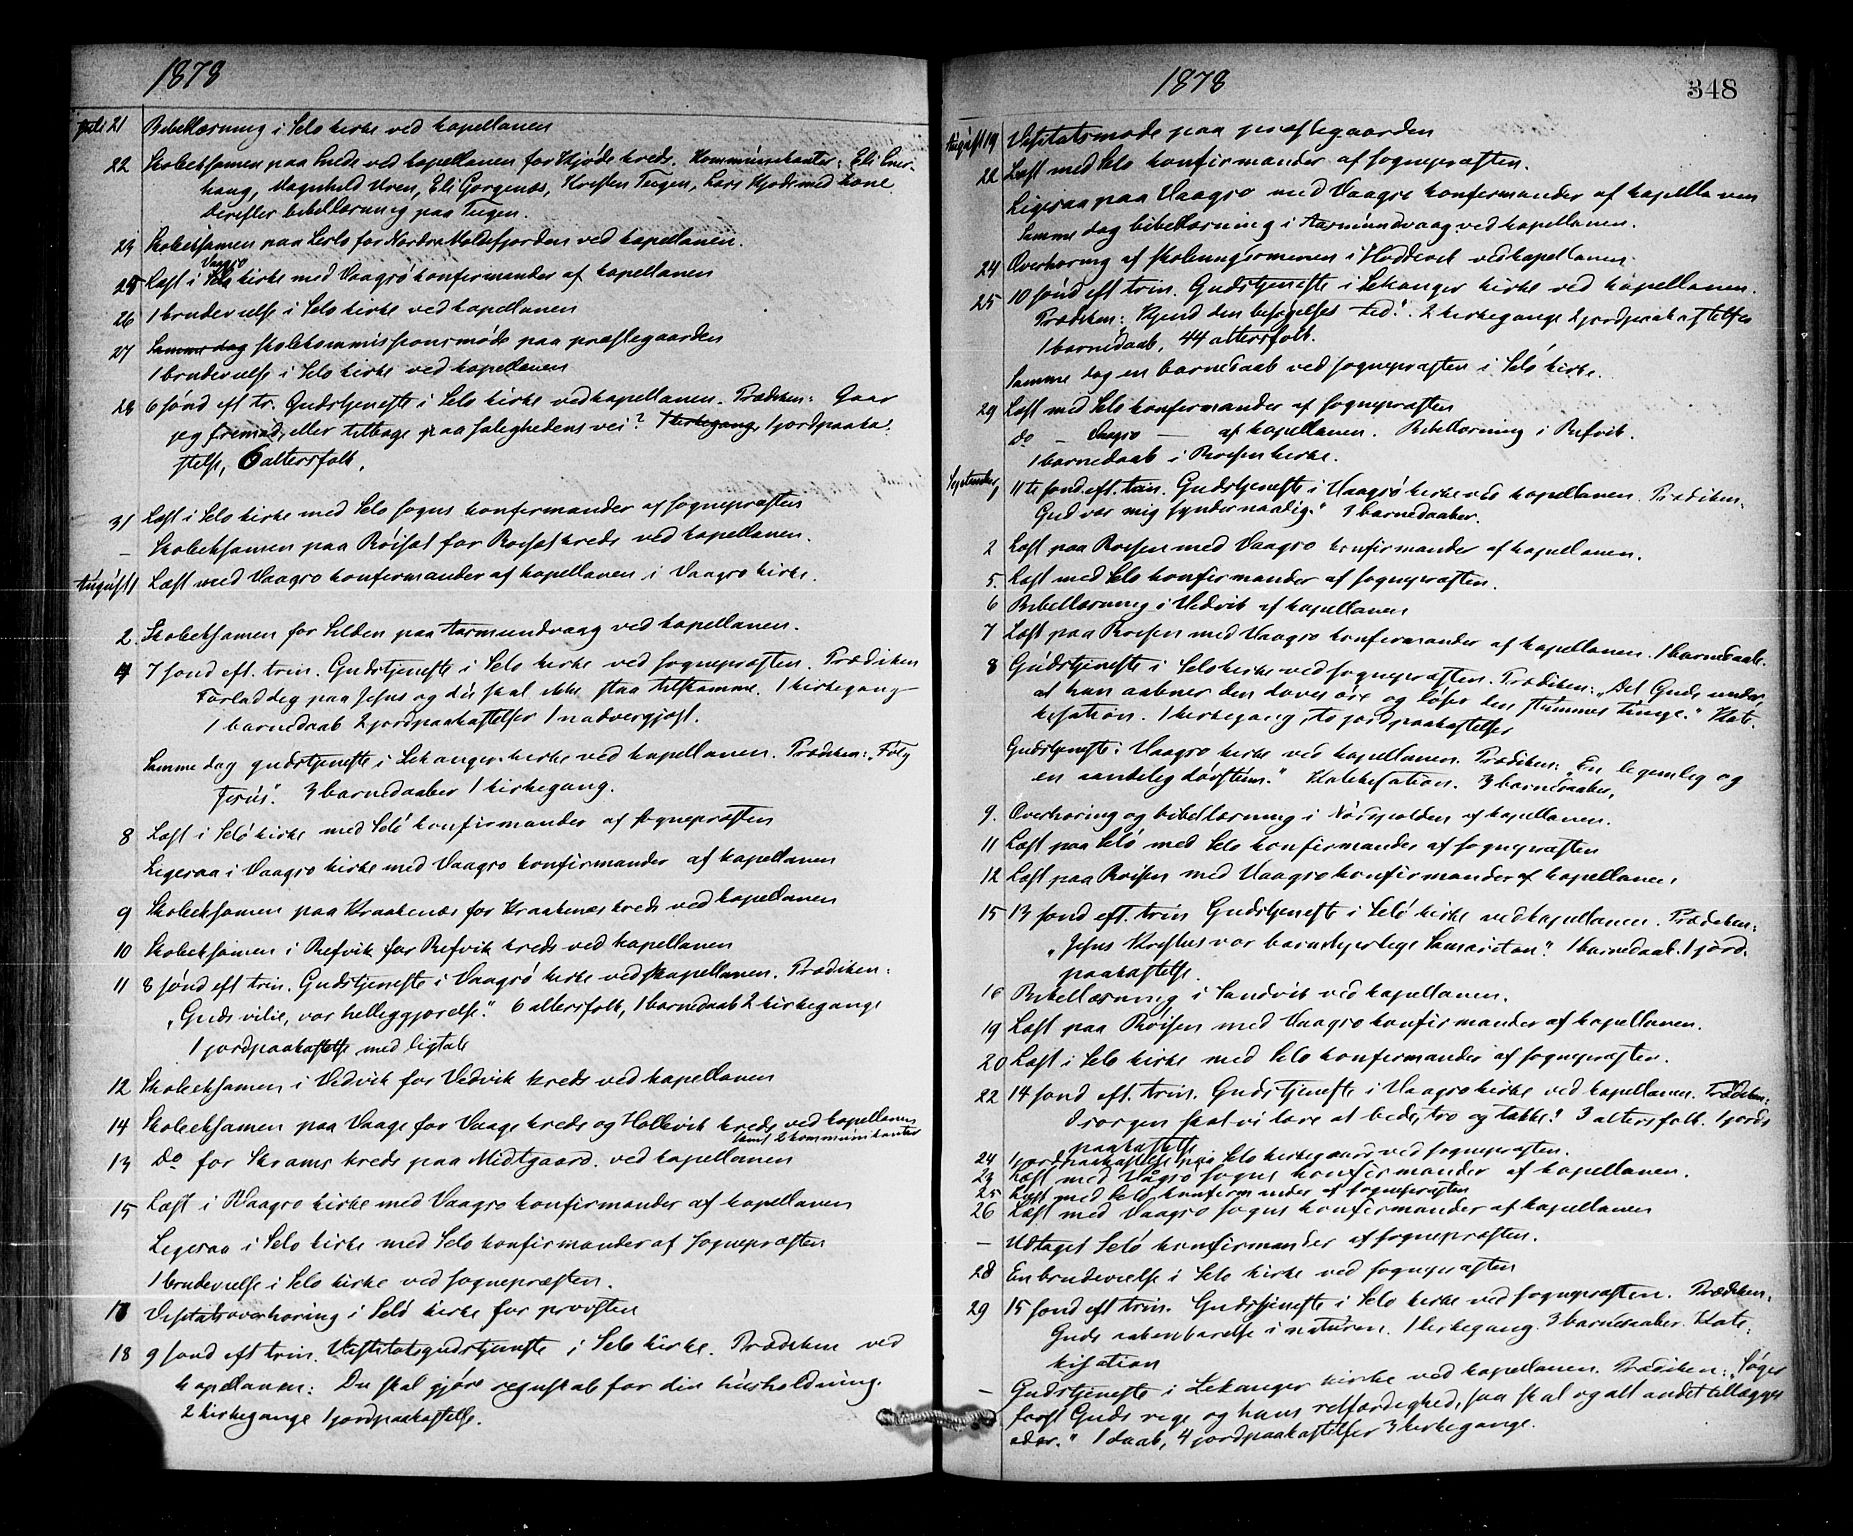 1878
juli 21 Bibellæsning i Selø kirke ved kapellanen
22 Skoleeksamen paa ved kapellanen for Hjøde kreds. Kommunikanter: Eli
haug, Magnhild Uren, Eli Gorgenæs, Kristen Teigen, Lars Hjøde med kone
Derefter bibellæsning paa Teigen.
23 Skoleeksamen paa for Nordre Moldefjorden ved kapellanen.
25 Læst i Vaagsø kirke med Vaagsø konfirmander af kapellanen
26 1 brudevielse i Selø kirke ved kapellanen
27 Samme dag skolekommissionsmøde paa præstegaarden
1 brudevielse i Selø kirke ved kapellanen
28 6 sønd eft tr. Gudstjeneste i Selø kirke ved kapellanen. Prædiken: Gaar
jeg fremad, eller tilbage paa salighedens vei? 1 kirkegang, 1 jordpaaka-
stelse, 6 altersfolk.
31 Læst i Selø kirke med Selø sogns konfirmander af sognepræsten
– Skoleeksamen paa Røiset for Røiset kreds ved kapellanen.
August 1 Læst med Vaagsø konfirmander af kapellanen i Vaagsø kirke.
2. Skoleeksamen for Silden paa Aarmundvaag ved kapellanen.
4 7 sønd eft. trin. Gudstjeneste i Selø kirke ved sognepræsten. Prædiken
Forlad dig paa Jesus og du skal ikke staa tilskamme. 1 kirkegang
1 barnedaab 2 jordpaakastelser 1 nadvergjæst.
Samme dag gudstjeneste i Lekanger kirke ved kapellanen. Prædiken: „Følg
Jesus". 3 barnedaaber 1 kirkegang.
8 Læst i Selø kirke med Selø konfirmander af sognepræsten
Ligesaa i Vaagsø kirke med Vaagsø konfirmander af kapellanen
9 Skoleeksamen paa Kraakenæs for Kraakenæs kreds ved kapellanen
10 Skoleeksamen i Refvik for Refvik kreds ved kapellanen
11 8 sønd eft trin. Gudstjeneste i Vaagsø kirke ved kapellanen. Prædiken:
„Guds vilie, vor helliggjørelse." 6 altersfolk, 1 barnedaab 2 kirkegange
1 jordpaakastelse med ligtale
12 Skoleeksamen i Vedvik for Vedvik kreds ved kapellanen
14 Skoleeksamen paa Vaage for Vaage kreds og Hollevik kreds ved kapellanen
samt 2 kommunikanter
13 Do for Skrams kreds paa Midtgaard. ved kapellanen
15 Læst i Vaagsø kirke med Vaagsø konfirmander af kapellanen
Ligesaa i Selø kirke med Selø konfirmander af sognepræsten
1 brudevielse i Selø kirke ved sognepræsten.
17 Visitatsoverhøring i Selø kirke for provsten
18 9 sønd eft trin. Visitatsgudstjeneste i Selø kirke. Prædiken ved
kapellanen: Du skal gjøre regnskab for din husholdning.
2 kirkegange 1 jordpaakastelse.
1878
348
August 19 Visitatsmøde paa præstegaarden
22 Læst med Selø konfirmander af sognepræsten.
Ligesaa paa Vaagsø med Vaagsø konfirmander af kapellanen
Samme dag bibellæsning i Aarmundvaag ved kapellanen.
24 Overhøring af skoleungdommen i Hoddevik ved kapellanen.
25 10 sønd eft trin. Gudstjeneste i Lekanger kirke ved kapellanen.
Prædiken: „Kjend den besøgelses tid". 2 kirkegange 2 jordpaakastelser
1 barnedaab, 44 altersfolk.
Samme dag en barnedaab ved sognepræsten i Selø kirke.
29 Læst med Selø konfirmander af sognepræsten
Do – Vaagsø – af kapellanen. Bibellæsning i Refvik.
1 barnedaab i Røisen kirke.
September 1 11te sønd. eft. trin. Gudstjeneste i Vaagsø kirke ved kapellanen. Prædiken:
Gud vær mig synder naadig." 3 barnedaaber.
2 Læst paa Røisen med Vaagsø konfirmander af kapellanen.
5. Læst med Selø konfirmander af sognepræsten.
6 Bibellæsning i Vedvik af kapellanen
7 Læst paa Røisen med Vaagsø konfirmander af kapellanen. 1 barnedaab.
8 Gudstjeneste i Selø kirke ved sognepræsten. Prædiken: „Det Guds under,
at han aabner den døves øre og løser den stummes tunge." Kat-
kisation. 1 kirkegang, to jordpaakastelser
Gudstjeneste i Vaagsø kirke ved kapellanen. Prædiken: „En legemlig og
en aandelig døvstum." Katekisation. 3 barnedaaber.
9. Overhøring og bibellæsning i af kapellanen.
11 Læst paa Selø med Selø konfirmander af sognepræsten
12 Læst paa Røisen med Vaagsø konfirmander af kapellanen
15 13 sønd eft. trin Gudstjeneste i Selø kirke ved kapellanen. Prædiken:
„Jesus Kristus vor barmhjertige Samaritan." 1 barnedaab. 1 jord-
paakastelse.
16 Bibellæsning i Sandvik ved kapellanen.
19 Læst paa Røisen med Vaagsø konfirmander af kapellanen.
20 Læst i Selø kirke med Selø konfirmander af sognepræsten.
22 14 sønd eft. trin. Gudstjeneste i Vaagsø kirke ved kapellanen. Prædiken:
I sorgen skal vi lære at bede, tro og takke! 3 altersfolk. 1 jords
paakastelse
24 1 jordpaakastelse paa Selø kirkegaard ved sognepræsten.
23 Læst med Vågsø sogns konfirmander af kapellanen.
25 Læst med Selø konfirmander af sognepræsten
26 Læst med Vaagsø sogns konfirmander af kapellanen
– Udtaget Selø konfirmander af sognepræsten.
28 En brudevielse i Selø kirke ved sognepræsten
29 15 sønd eft trin. Gudstjeneste i Selø kirke ved sognepræsten. Prædiken.
Guds aabenbarelse i naturen. 1 kirkegang. 3 barnedaaber. Kate-
kisation
– Gudstjeneste i Lekanger kirke ved kapellanen. Prædiken: „Søger
først Guds rige og hans retfærdighed, saa skal og alt andet tillægges
eder." 1 daab, 4 jordpaakastelser 3 kirkegange.